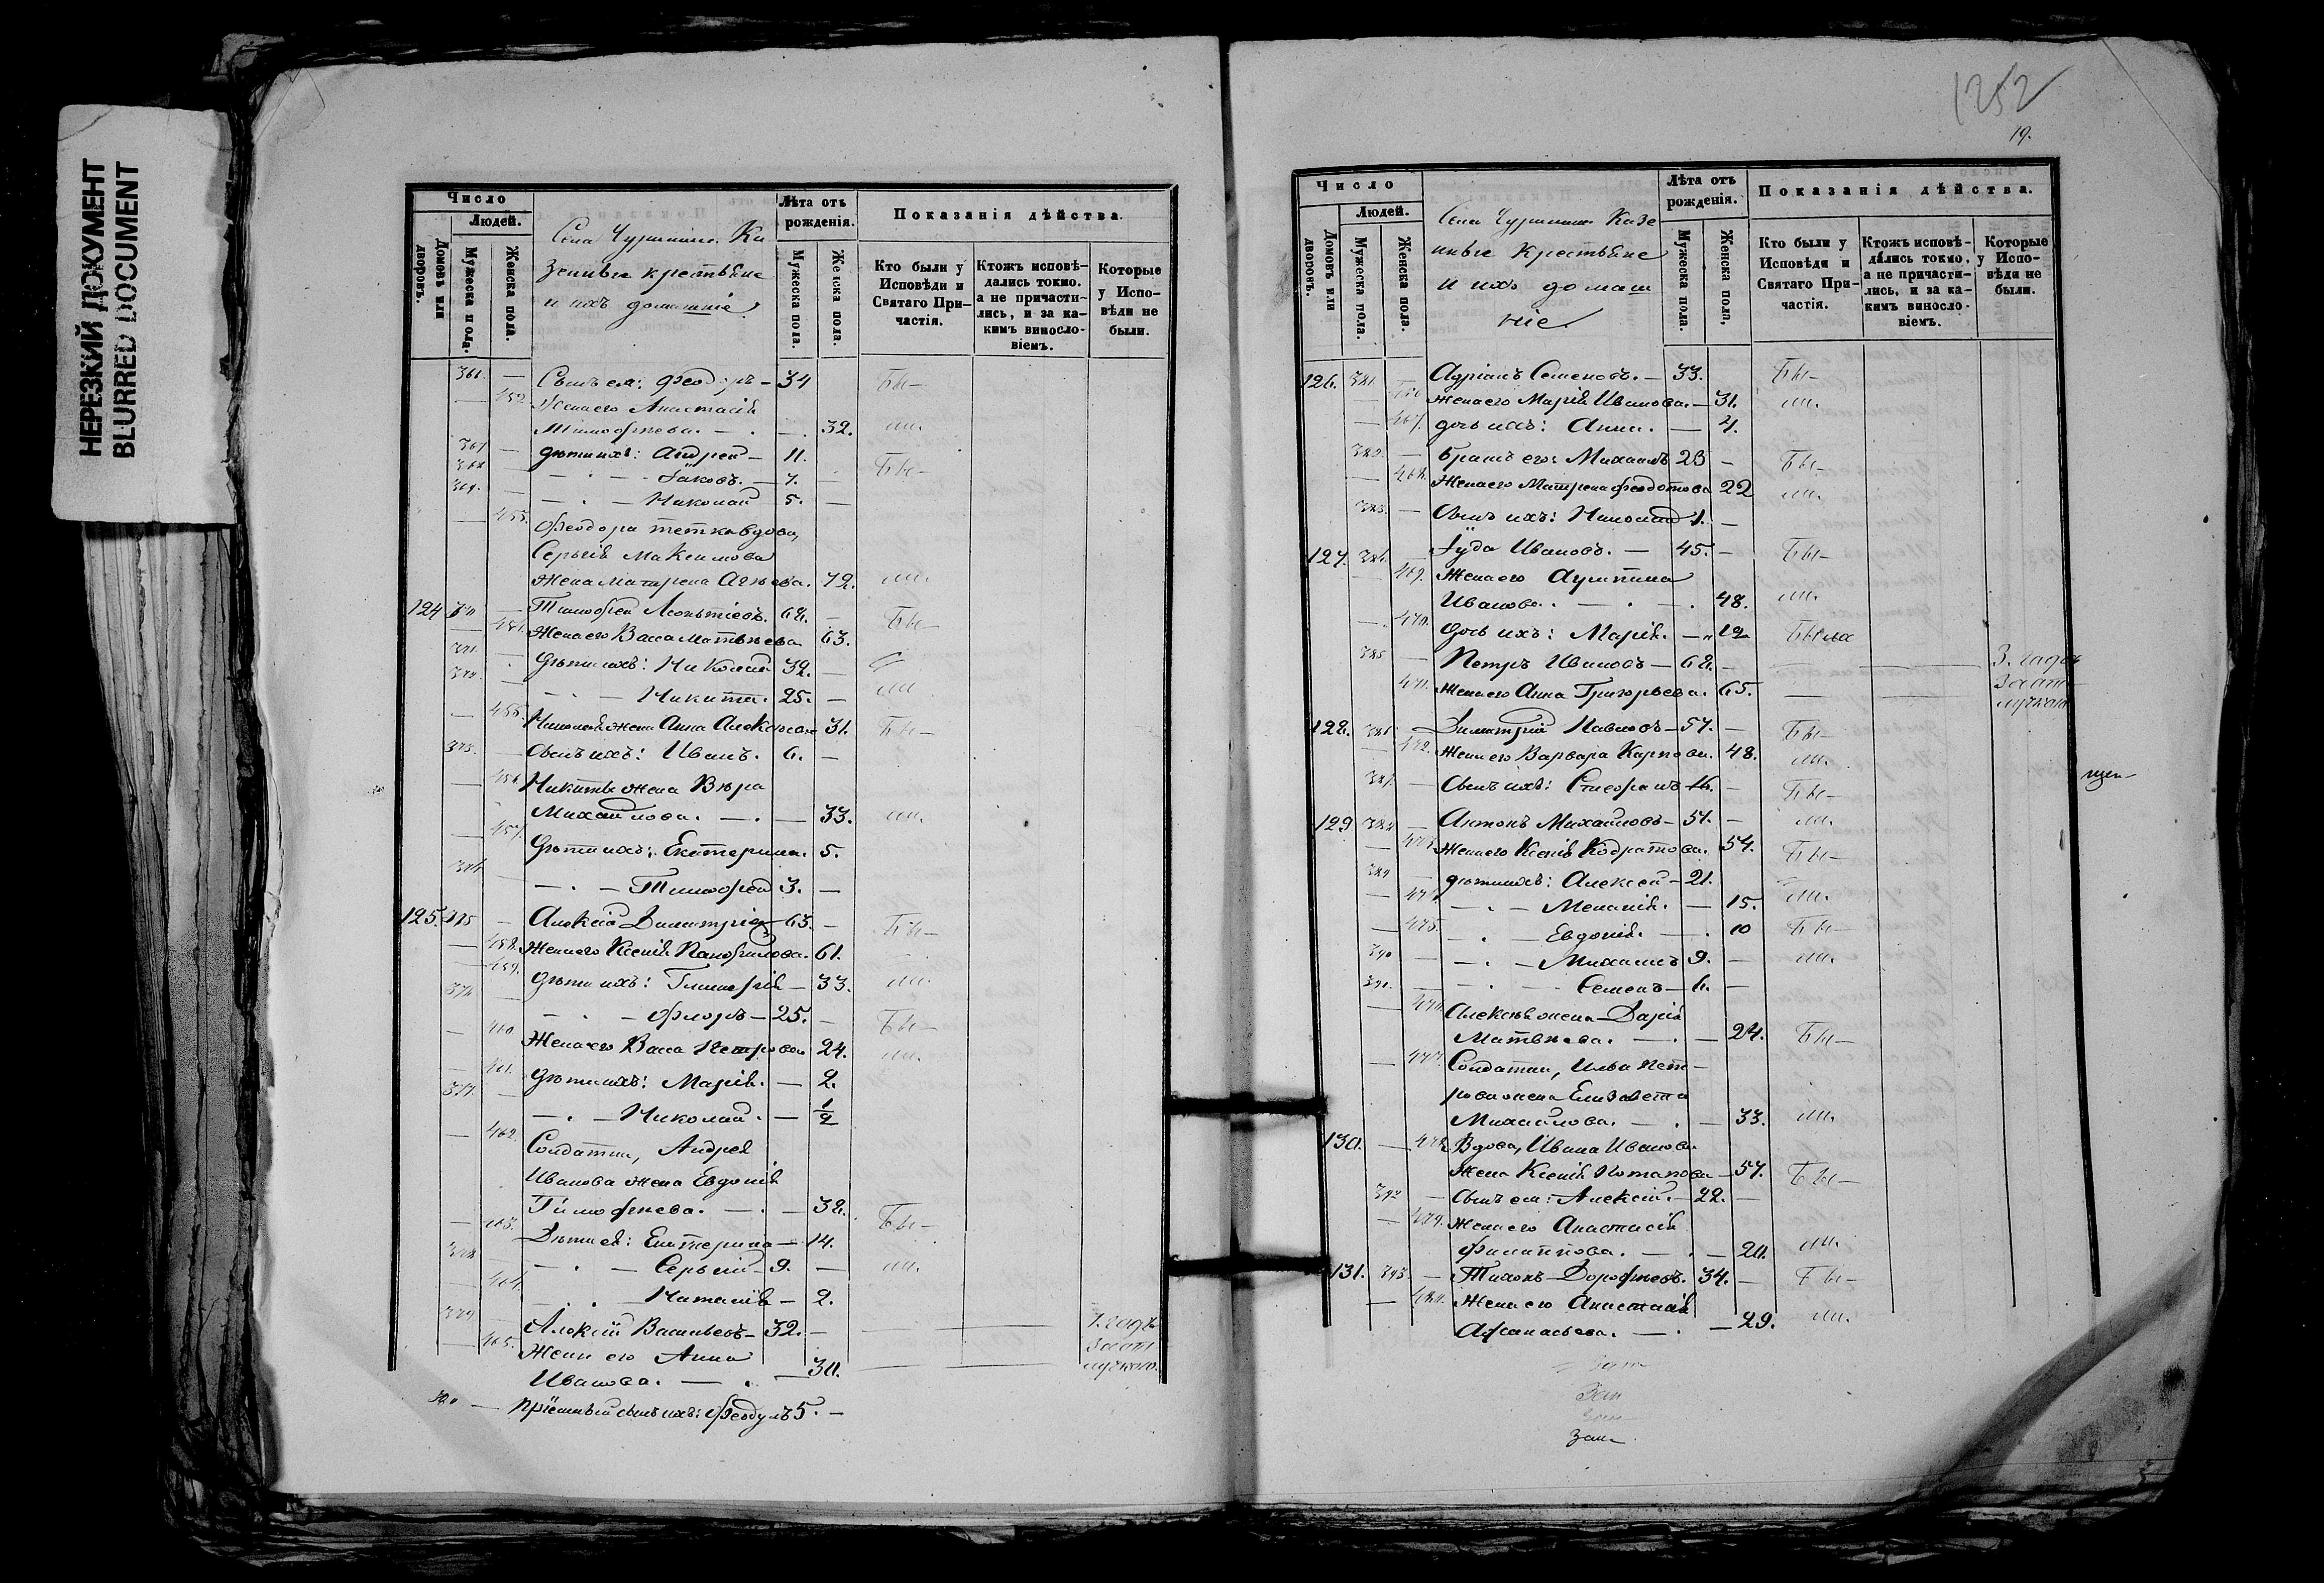 НЕРЕЗКИЙ ДОКУМЕНТ
BLURRED DOCUMENT
Число
Людей.
Домовъ или дворовъ.
Мужеска пола.
Женска пола.
Села Ка
зенные крестьяне
и ихъ домашніе.
Лѣта отъ рожденія.
Мужеска пола.
Женска пола.
Показанія дѣйства.
Кто были у Исповѣди и Святаго При-частія.
Ктожъ исповѣ-дались токмо, а не причасти-лись, и за ка-кимъ винослo-віемъ.
Которые у Испо-вѣди не были.
366. — Сынъ ея: Феодоръ — 34 Бы-
— 452. Жена его Анастасія
Тимофеева. — 32. ли.
367. — дѣти ихъ: Андрей — 11.
368. Іаковъ. — 7. — Бы-
369. — Николай 5. —
— 453. Феодора тетка вдова,
Сергѣя Максимова
жена Матрена 72. ли.
124 370 — Тимофей Леонтіевъ. 68. — Бы-
— 454. Жена его Васса Матвѣева 63.
371. Дѣти ихъ: Николай 32. —
372. — Никита. 25. — ли
— 455. Николая жена Анна Алексѣева 31. Бы-
373. — Сынъ ихъ: Иванъ. 6. —
— 456. Никиты жена Вѣра
Михайлова. — 33. ли.
— 457. Дѣти ихъ: Екатерина. 5.
374. — Тимофей 3. —
125. 375 — Алексій Димитріевъ 63. — Бы-
— 458. Жена его Ксенія Панфилова. 61.
— 459. Дѣти ихъ: Гликерія — 33. ли.
376. — Флоръ — 25. — Бы-
— 460. Жена его Васса Петрова 24. ли.
— 461. Дѣти ихъ: Марія. — 2.
377. — Николай. — 1/2
— 462. Солдатка, Андрея
Иванова жена Евдокія
Тимофеева. — 38. Бы-
— 463. Дѣти ея: Екатерина — 14.
378. — Сергій — 9. — ли.
— 464. Наталія — 2.
379. Алексій Васильевъ — 32. —
— 465. Жена его Анна
Иванова. — 30.
за от
лучкою.
380 — Пріемный сынъ ихъ: Феодулъ 5. —
1252
19.
Число
Людей.
Домовъ или дворовъ.
Мужеска пола.
Женска пола.
Села Казе
нные крестьяне
и ихъ домаш
ніе.
Лѣта отъ рожденія.
Мужеска пола.
Женска пола.
Показанія дѣйства.
Кто были у Исповѣди и Святаго При-частія.
Ктожъ исповѣ-дались токмо, а не причасти-лись, и за ка-кимъ винослo-віемъ.
Которые у Испо-вѣди не были.
126. 381. Адріанъ Семеновъ. — 33. Бы-
— 466 Жена его Марія Иванова. — 31. ли.
— 467. дочь ихъ: Анна. — 4.
382. — Братъ его: Михаилъ 23 — Бы-
— 468. Жена его Матрена Федотова 22 ли.
383. — Сынъ ихъ: Николай 1. —
127. 384. — Іуда Ивановъ. — 45. — Бы-
— 469. Жена его
Иванова. — 48. ли.
— 470. Дочь ихъ: Марія. — 12 Была
385 — Петръ Ивановъ — 68. — 3. года
471. Жена его Анна Григорьева. 65. — за от
лучкою
128. 386. — Димитрій Павловъ — 57. — Бы-
— 472. Жена его Варвара Карпова. 48. ли.
387. — Сынъ ихъ: Стефанъ 16. — Бы-
129 388 — Антонъ Михайловъ — 57. — ли.
— 473. Жена его Ксенія Кодратова. 54. Бы-
389 — дѣти ихъ: Алексѣй — 21.
— 474. — Меланія. — 15. ли.
— 475. — Евдокія. — 10 Бы-
390 — Михаилъ 9. — ли.
391. — Семенъ — 6. —
— 476. Алексѣя жена Дарія
Матвѣева. — 24. Бы-
— 477. Солдатка, Ильи Пет-
рова жена Елизавета
Михайлова. — 33. ли.
130. — 478. Вдова, Ивана Иванова
жена Ксенія Потапова — 57. Бы-
392 — Сынъ ея: Алексій. — 22. —
— 479. Жена его Анастасія
Филиппова. — 20. ли.
131. 393. — Тихонъ Дорофеевъ. 34. — Бы-
— 480. Жена его Анастасія
Афанасьева. — 29. ли.